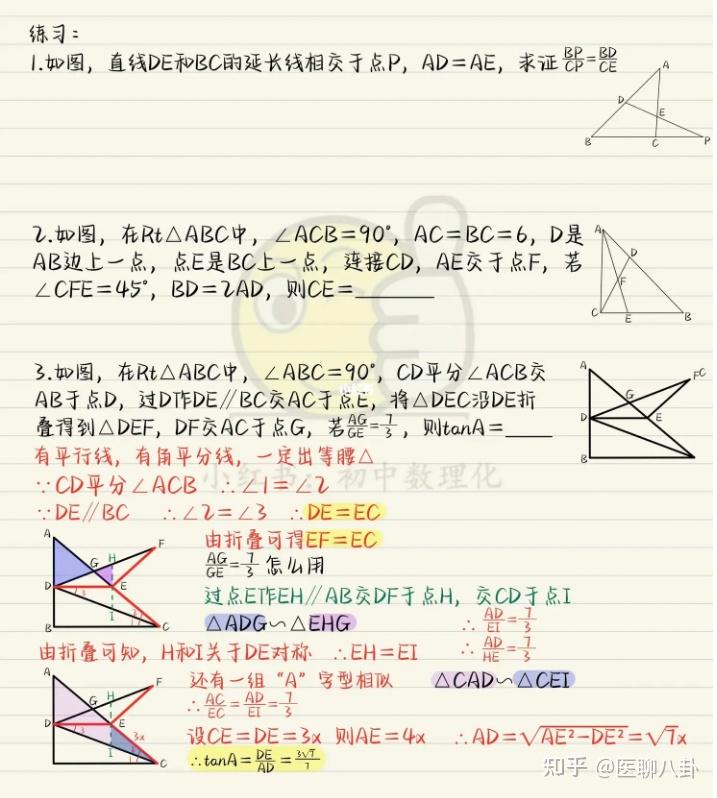 练习：
1.如图，直线DE和BC的延长线相交于点P，AD＝AE，求证BP/CP＝BD/CE
A
D
E
B
C
P
2.如图，在Rt△ABC中，∠ACB＝90°，AC＝BC＝6，D是
AB边上一点，点E是BC上一点，连接CD，AE交于点F，若
∠CFE＝45°，BD＝2AD，则CE＝______
A
D
F
C
E
B
3.如图，在Rt△ABC中，∠ABC＝90°，CD平分∠ACB交
AB于点D，过D作DE∥BC交AC于点E，将△DEC沿DE折
叠得到△DEF，DF交AC于点G，若AG/GE＝7/3，则tanA＝____
A
FC
G
D
E
B
有平行线，有角平分线，一定出等腰△
小红书：初中数理化
∵CD平分∠ACB ∴∠1＝∠2
∵DE∥BC ∴∠2＝∠3 ∴DE＝EC
由折叠可得EF＝EC
AG/GE＝7/3 怎么用
过点E作EH∥AB交DF于点H，交CD于点I
△ADG∽△EHG ∴AD/EI＝7/3
A
H
F
G
D
E
3
I
B
C
由折叠可知，H和I关于DE对称 ∴EH＝EI ∴AD/HE＝7/3
还有一组“A”字型相似 △CAD∽△CEI
∴AC/EC＝AD/EI＝7/3
设CE＝DE＝3x 则AE＝4x ∴AD＝√AE²−DE²＝√7x
∴tanA＝DE/AD＝3√7/7
A
H
F
G
D
E
3
3x
I
B
C
知乎 @医聊八卦